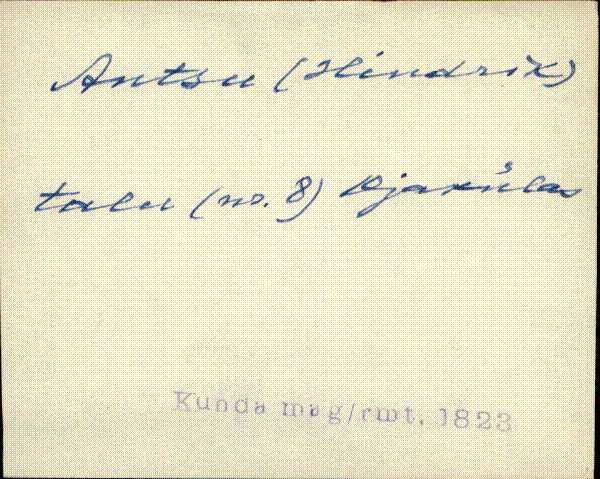 Antsu (Hindrik)
talu (no. 8) Ojakülas
Kunda mag/rmt. 1823